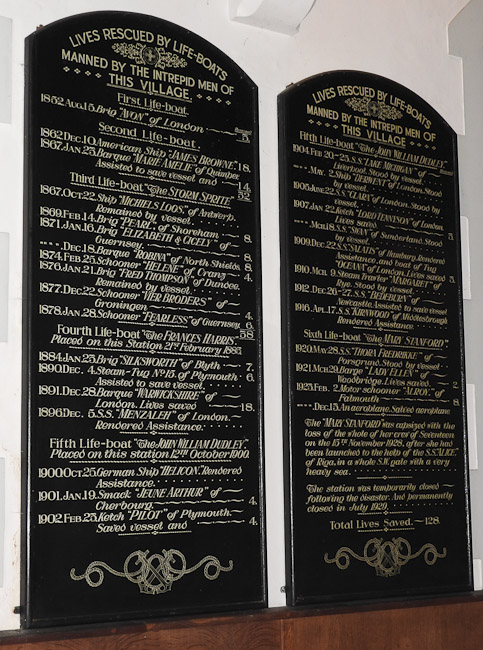 LIVES RESCUED BY LIFE-BOATS
MANNED BY THE INTREPID MEN OF
THIS VILLAGE.
First Life-boat.
1852 Aug.15. Brig "AVON" of London 5.
Second Life-boat.
1862 Dec.10. American Ship "JAMES BROWNE". 18.
1867. Jan.23. Barque "MARIE AMELIE" of Quimper
Assisted to save vessel and 14.
32
Third Life-boat "The STORM SPRITE"
1867. Oct.22. Ship "MICHIELS LOOS," of Antwerp.
Remained by vessel.
1869. Feb.14. Brig "PEARL," of Shoreham 8.
1871. Jan.16. Brig "ELIZABETH & CICELY" of
Guernsey. 8.
---- Dec.18. Barque "ROBINA" of North Shields. 8.
1874. Feb.25. Schooner "HELENE" of Cranz 4.
1876. Jan.21. Brig "FRED THOMPSON" of Dundee.
Remained by vessel.
1877. Dec.22. Schooner "VIER BRODERS" of
Groningen 4.
1878. Jan.28. Schooner "FEARLESS" of Guernsey. 6.
58
Fourth Life-boat "The FRANCES HARRIS".
Placed on this Station 21st February 1887.
1884 Jan.23. Brig "SILKSWORTH" of Blyth 7.
1890. Dec. 4. Steam-Tug No 15. of Plymouth 6.
Assisted to save vessel.
1891. Dec.28. Barque "WARWICKSHIRE" of
London. Lives saved 18.
1896. Dec. 5. S.S. "MENZALEH" of London.
Rendered Assistance.
Fifth Life-boat "The JOHN WILLIAM DUDLEY."
Placed on this station 12th October 1900.
1900 Oct.25. German Ship "HELICON". Rendered
Assistance.
1901. Jan.19. Smack "JEUNE ARTHUR" of
Cherbourg. 4.
1902. Feb.23. Ketch "PILOT" of Plymouth.
Saved vessel and 4.
LIVES RESCUED BY LIFE-BOATS
MANNED BY THE INTREPID MEN OF
THIS VILLAGE
Fifth Life-boat "The JOHN WILLIAM DUDLEY."
1904. Feb 20-25. S.S. "LAKE MICHIGAN" of
Liverpool. Stood by vessel.
---- May. 2. Ship "DERWENT" of London. Stood
by vessel.
1905. June 22. S.S. "CLARA" of London. Stood by
vessel.
1907. Jan 22. Ketch "LORD TENNYSON" of London.
Lives saved
---- Mch 18. S.S. "SWAN" of Sunderland. Stood
by vessel.
1909. Dec.22. S.S. "SALATIS" of Hamburg. Rendered
Assistance. and boat of Tug
"OCEANA" of London. Lives saved 5.
1910. Mch 9. Steam Trawler "MARGARET" of
Rye. Stood by vessel.
1912. Dec. 26-27. S.S. "BEDEBURN" of
Newcastle. Assisted to save vessel
1916. Ap.17. S.S. "KIRNWOOD" of Middlesbrough
Rendered Assistance.
Sixth Life-boat "The MARY STANFORD"
1920. May 28. S.S. "THORA FREDRIKKE" of
Porsgrund. Stood by vessel.
1921. Mch 29. Barge "LADY ELLEN" of
Woodbridge. Lives saved. 2.
1925. Feb. 2. Motor schooner "ALROY," of
Falmouth 8.
---- Dec.13. An aeroplane. Salved aeroplane
The "MARY STANFORD" was capsized with the
loss of the whole of her crew of Seventeen
on the 15th November 1928, after she had
been launched to the help of the S.S. "ALICE"
of Riga, in a whole S.W. gale with a very
heavy sea.
The station was temporarily closed
following the disaster. And permanently
closed in July 1929.
Total Lives Saved. 128.